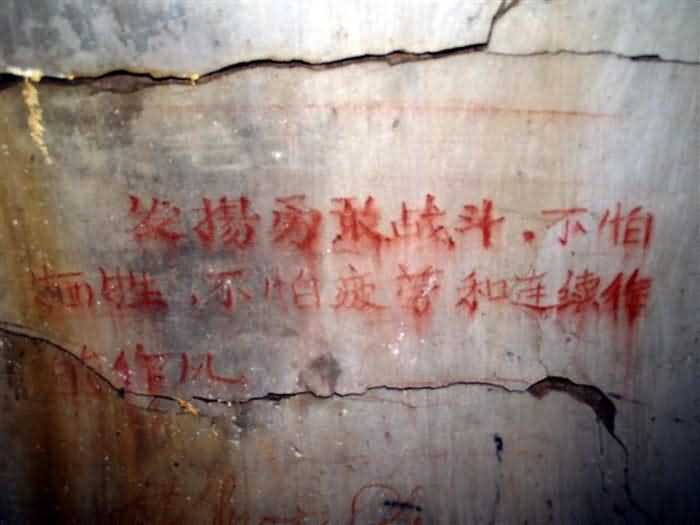 发揚勇敢战斗，不怕
牺牲，不怕疲劳和连续作
的作风